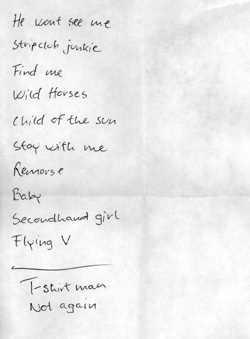 He wont see me
Stripclub junkie
Find me
Wild Horses
Child of the sun
Stay with me
Remorse
Baby
Secondhand girl
Flying V
T-shirt man
Not again